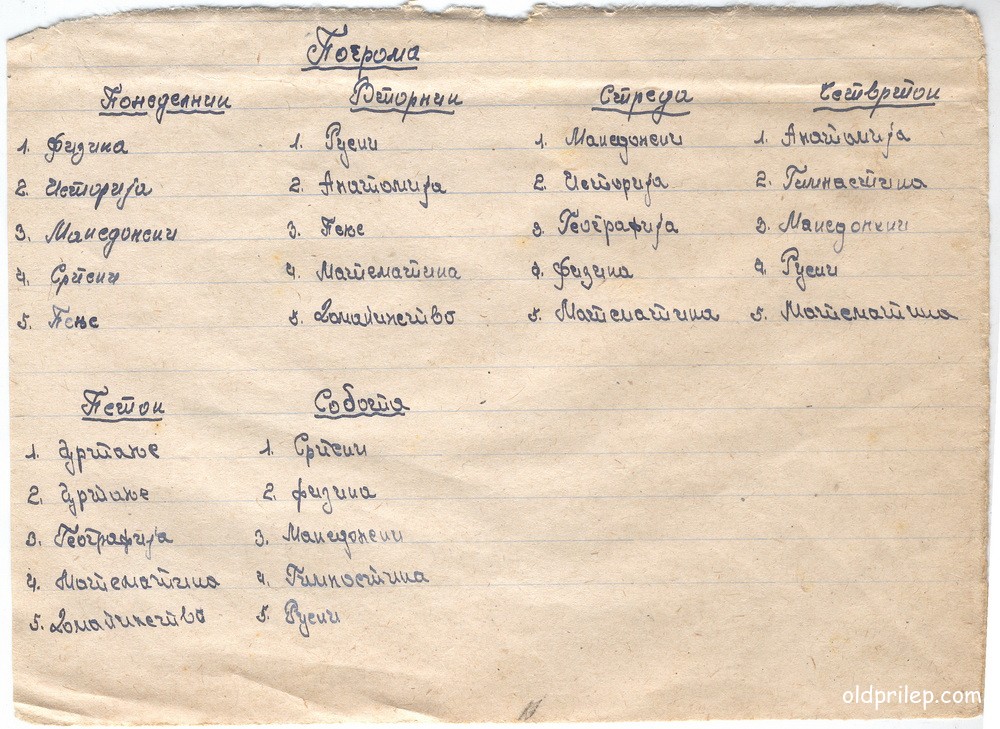 Пограма
Понеделник
1. Физика
2. Историја
3. Македонски
4. Српски
5. Пење
Вторник
1. Руски
2. Анатомија
3. Пење
4. Математика
5. Домаќинство
Стреда
1. Македонски
2. Историја
3. Географија
4. Физика
5. Математика
Четврток
1. Анатомија
2. Гимнастика
3. Македонкии
4. Руски
5. Математика
Петок
1. Цртање
2. Цртање
3. Географија
4. Математика
5. Домаќинство
Собота
1. Српски
2. Физика
3. Македонски
4. Гимностика
5. Руски
oldprilep.com